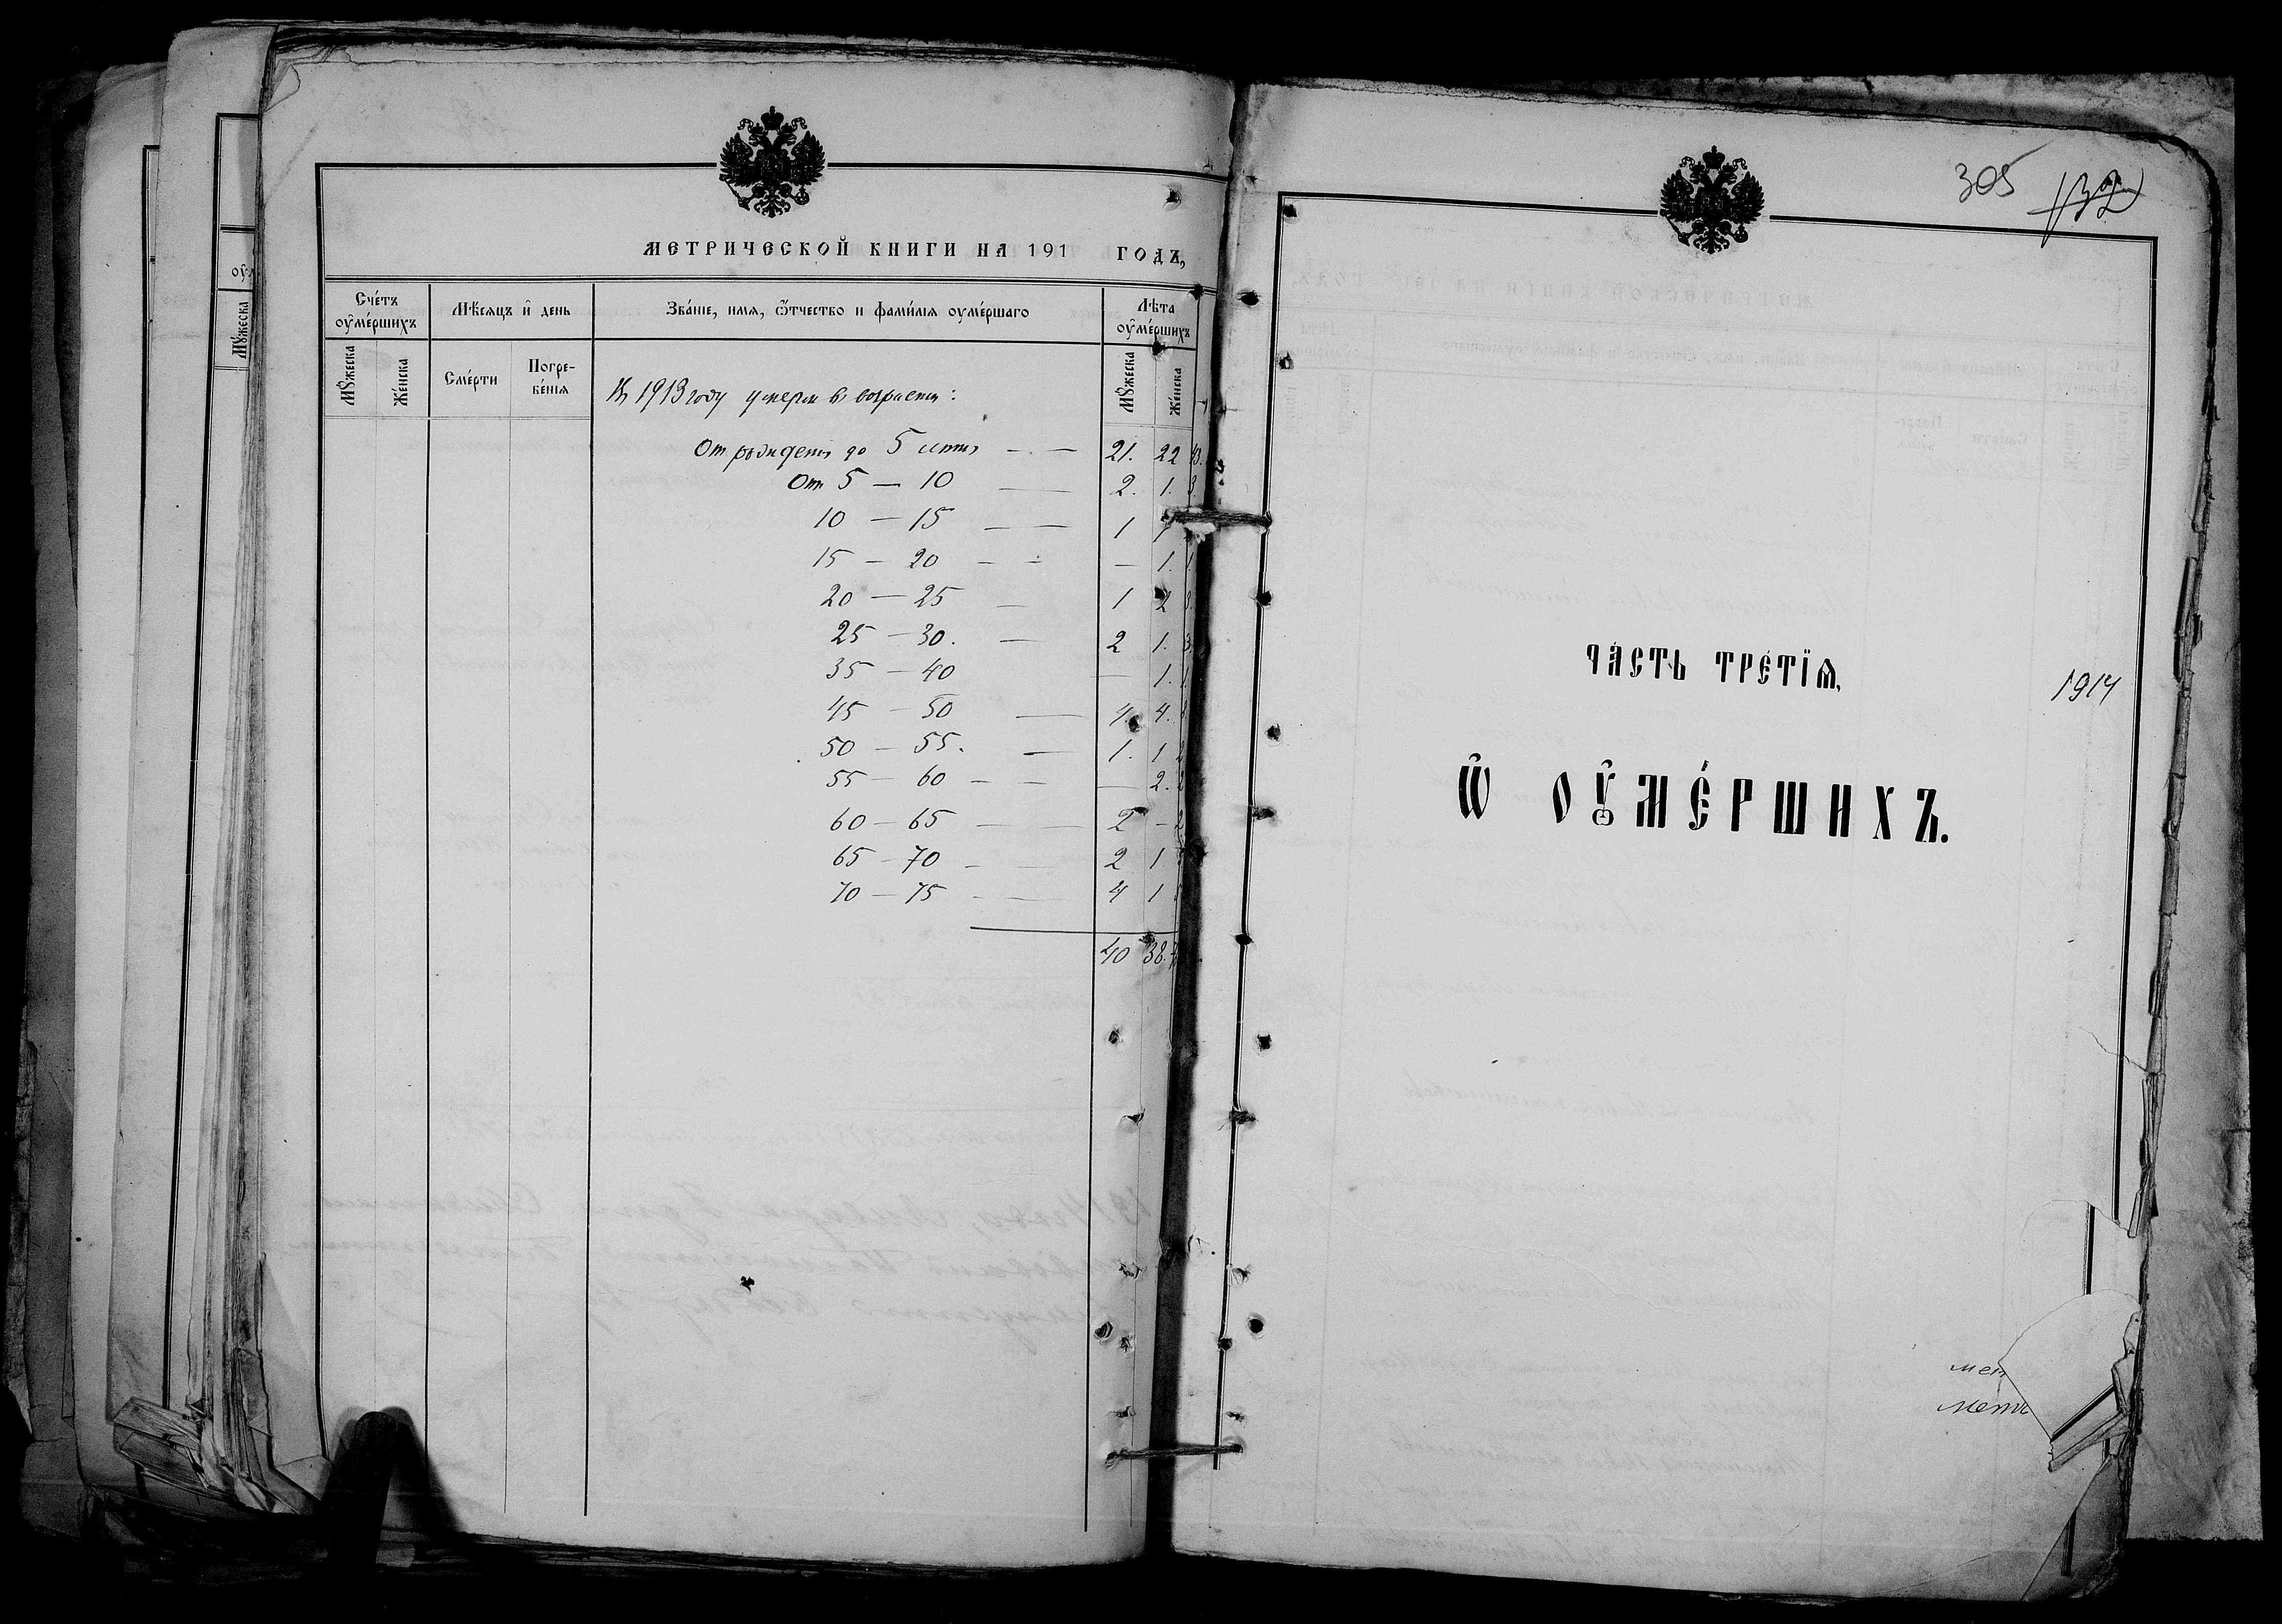 МЕТРИЧЕСКОЙ КНИГИ НА 191 ГОДЪ,
Сче́тъ ᲂу҆ме́ршихъ
Мѣ́сяцъ и҆ день
Зва́нїе, имѧ, ѻ҆́тчество и фами́лїѧ ᲂуме́ршаго
Лѣта ᲂу҆ме́ршихъ
Мꙋ́жеска
Же́нска
Сме́рти
Погребе́нїѧ
Мꙋ́жеска
Же́нска
Въ 1913 году умерли въ возрастѣ:
Отъ рожденія до 5 лѣтъ — — 21. 22 43.
Отъ 5 — 10 — 2. 1. 3.
10 — 15 — — 1 1
15 — 20 — — — 1. 1.
20 — 25 — 1 2 3.
25 — 30. — 2 1. 3.
35 — 40 — 1. 1.
45 — 50 — 4. 4. 8.
50 — 55. — 1. 1 2
55 — 60 — — — 2. 2
60 — 65 — — 2 — 2
65 — 70 — — 2 1
70 — 75 — — 4 1
40 38.
305 132
ЧА́СТЬ ТРЕ́ТЇѦ,
1914
Ѡ҆ ОУ҆МЕ́РШИХЪ.
Мꙋ́жеска